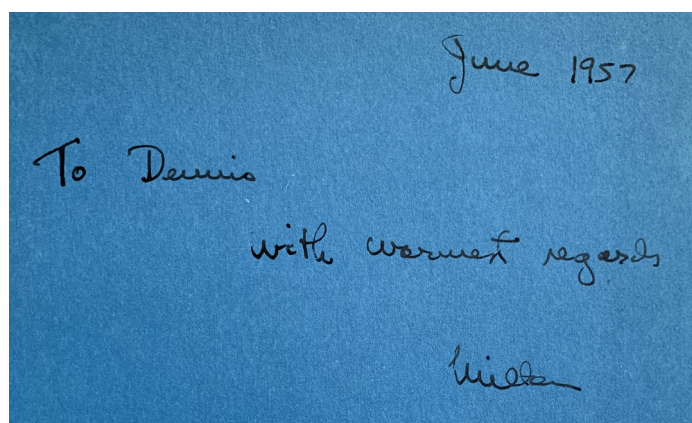 June 1957
To Dennis
with warmest regards